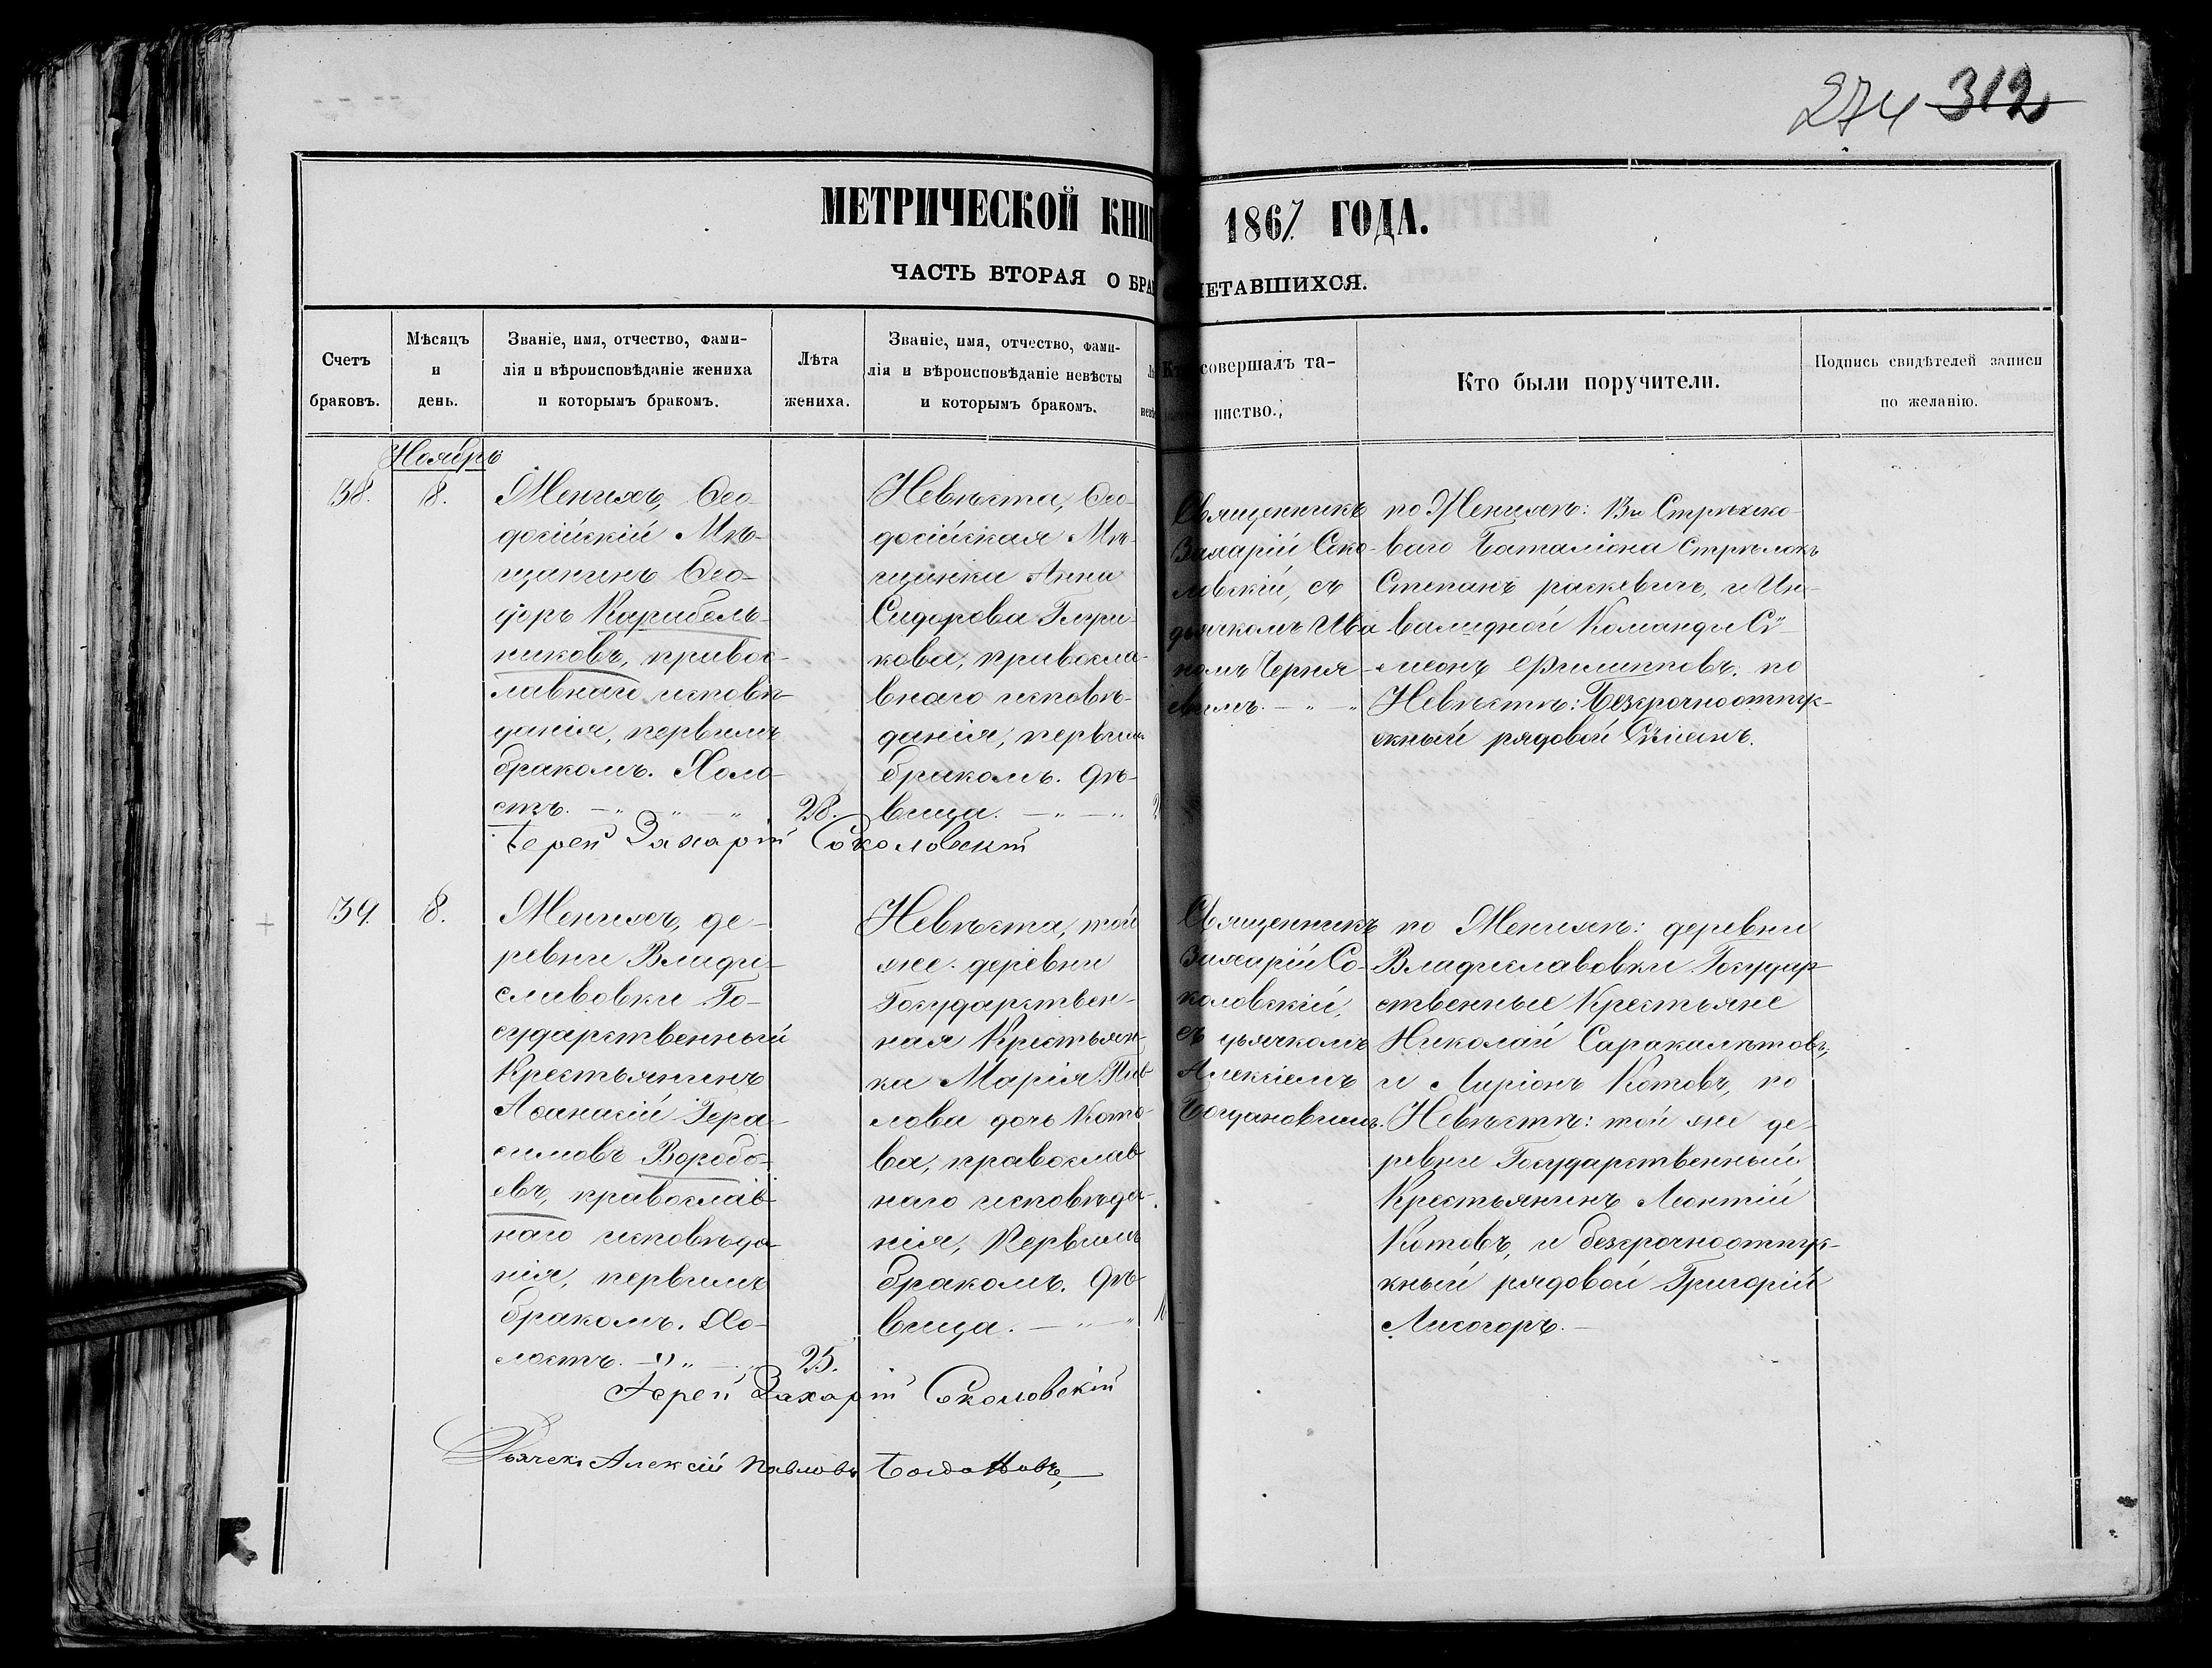 274 312
МЕТРИЧЕСКОЙ КНИ 1867 ГОДА.
ЧАСТЬ ВТОРАЯ О БРА ЧЕТАВШИХСЯ.
Счетъ
браковъ.
Мѣсяцъ
и
день.
Званіе, имя, отчество, фами-
лія и вѣроисповѣданіе жениха
и которымъ бракомъ.
Лѣта
жениха.
Званіе, имя, отчество, фами-
лія и вѣроисповѣданіе невѣсты
и которымъ бракомъ.
совершалъ та-
инство.
Кто были поручители.
Подпись свидѣтелей записи
по желанію.
Ноябрь
38.
8.
Женихъ, Ѳео-
досійскій Мѣ-
щанинъ Ѳео-
доръ Карабель-
никовъ, правос-
лавнаго исповѣ-
данія, первымъ
бракомъ. Холо-
стъ.
28.
Невѣста, Ѳео-
досійская Мѣ-
щанка Анна
Сидорова
кова, правосла-
внаго исповѣ-
данія, первымъ
бракомъ. Дѣ-
вица.
Священникъ
Захарій Соко-
ловскій, съ
дьячкомъ Ива
номъ Черня-
по Женихѣ: Стрѣлко-
ваго Баталіона Стрѣлокъ
Степанъ и Ин-
валидной Команды Си-
меонъ Филипповъ. по
Невѣстѣ: Безсрочноотпу-
скный рядовой
Іерей Захарій Соколовскій
39.
8.
Женихъ, де-
ревни Влади-
славовки Го-
сударственный
Крестьянинъ
Аѳанасій Гера-
симовъ Воробь-
евъ, православ-
наго исповѣда-
нія, первымъ
бракомъ. Хо-
лостъ.
25.
Невѣста, той
же деревни
Государствен-
ная Крестьян-
ка Марія Пав
лова дочь Кото-
ва, православ
наго исповѣда-
нія, Первымъ
бракомъ. Дѣ-
вица.
Священникъ
Захарій Со-
коловскій,
съ дьячкомъ
Алексіемъ
Богдановымъ.
по Женихѣ: деревни
Владиславовки Государ-
ственные Крестьяне
Николай Саракалѣтовъ,
и Ларіонъ Котовъ, по
Невѣстѣ: той же де-
ревни Государственный
Крестьянинъ Леонтій
Котовъ, и безсрочноотпус-
кный рядовой Григорій
Лисогоръ.
Іерей Захарій Соколовскій
Дьячекъ Алексій Павловъ Богдановъ,